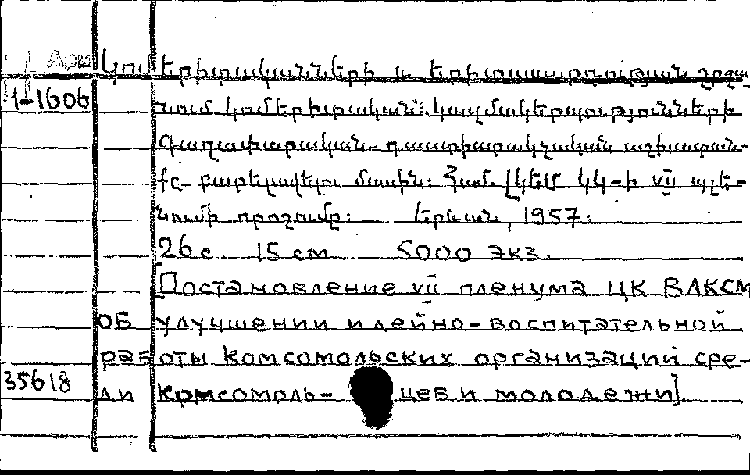 Арм Կոմ երիտականների և երիտասարդության շրջա-
1-1606 նում կոմերիտական կազմակերպությունների
գաղափարական-դաստիարակչական աշխատան-
քը բարելավելու մասին: Համ ԼԿԵՄ ԿԿ-ի VII պլե-
նումի որոշումը: Երևան, 1957:
26 с 15 см 5000 экз.
[Постановление VII пленума ЦК ВЛКСМ
об улучшении идейно-воспитательной
работы комсомольских организаций сре-
35618 ди комсомоль- цев и молодежи].